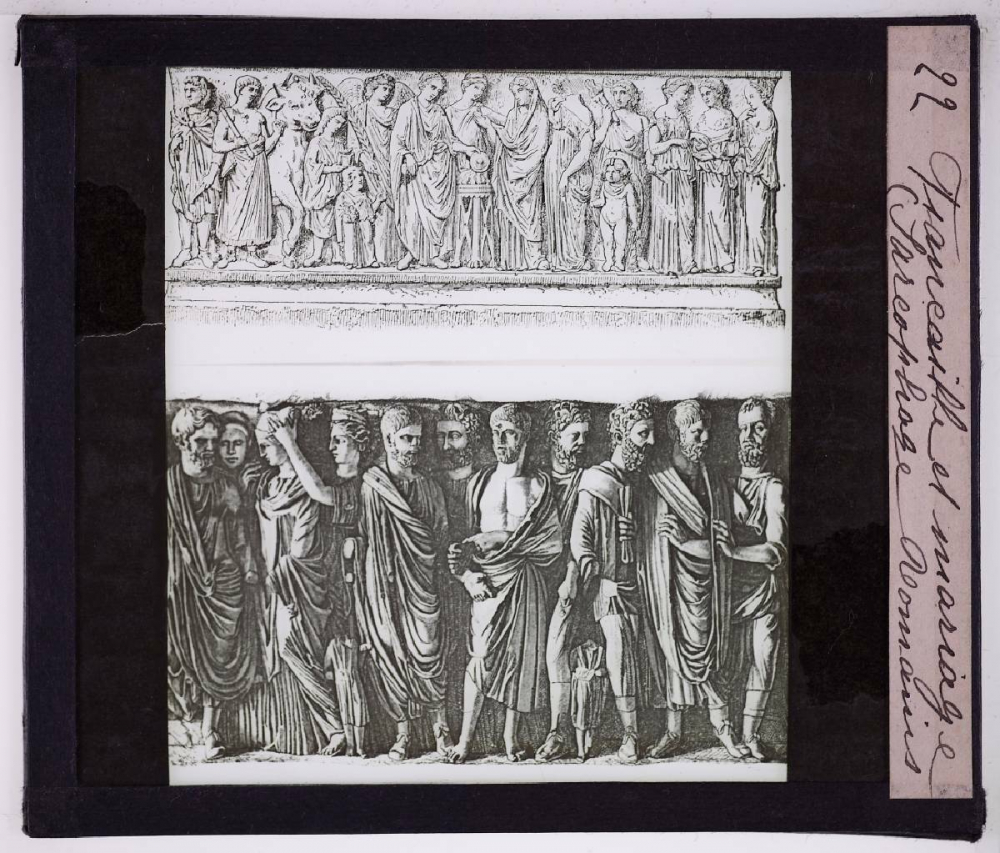 22 Fiancaille et mariage
(Sarcophage Romains